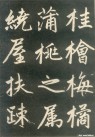 桂檜梅橘
蒲桃之属
繞屋扶疎